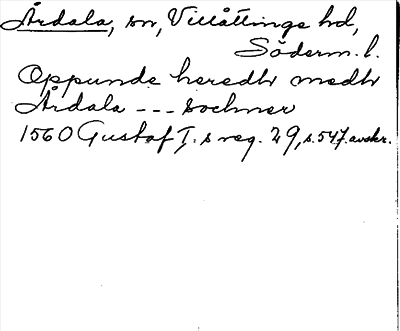 Årdala, sn, Villåttinge hd,
Söderm. l.
Oppunde heredh medh
Årdala --- sochner
1560 Gustaf I.s reg. 29, s. 547. avskr.